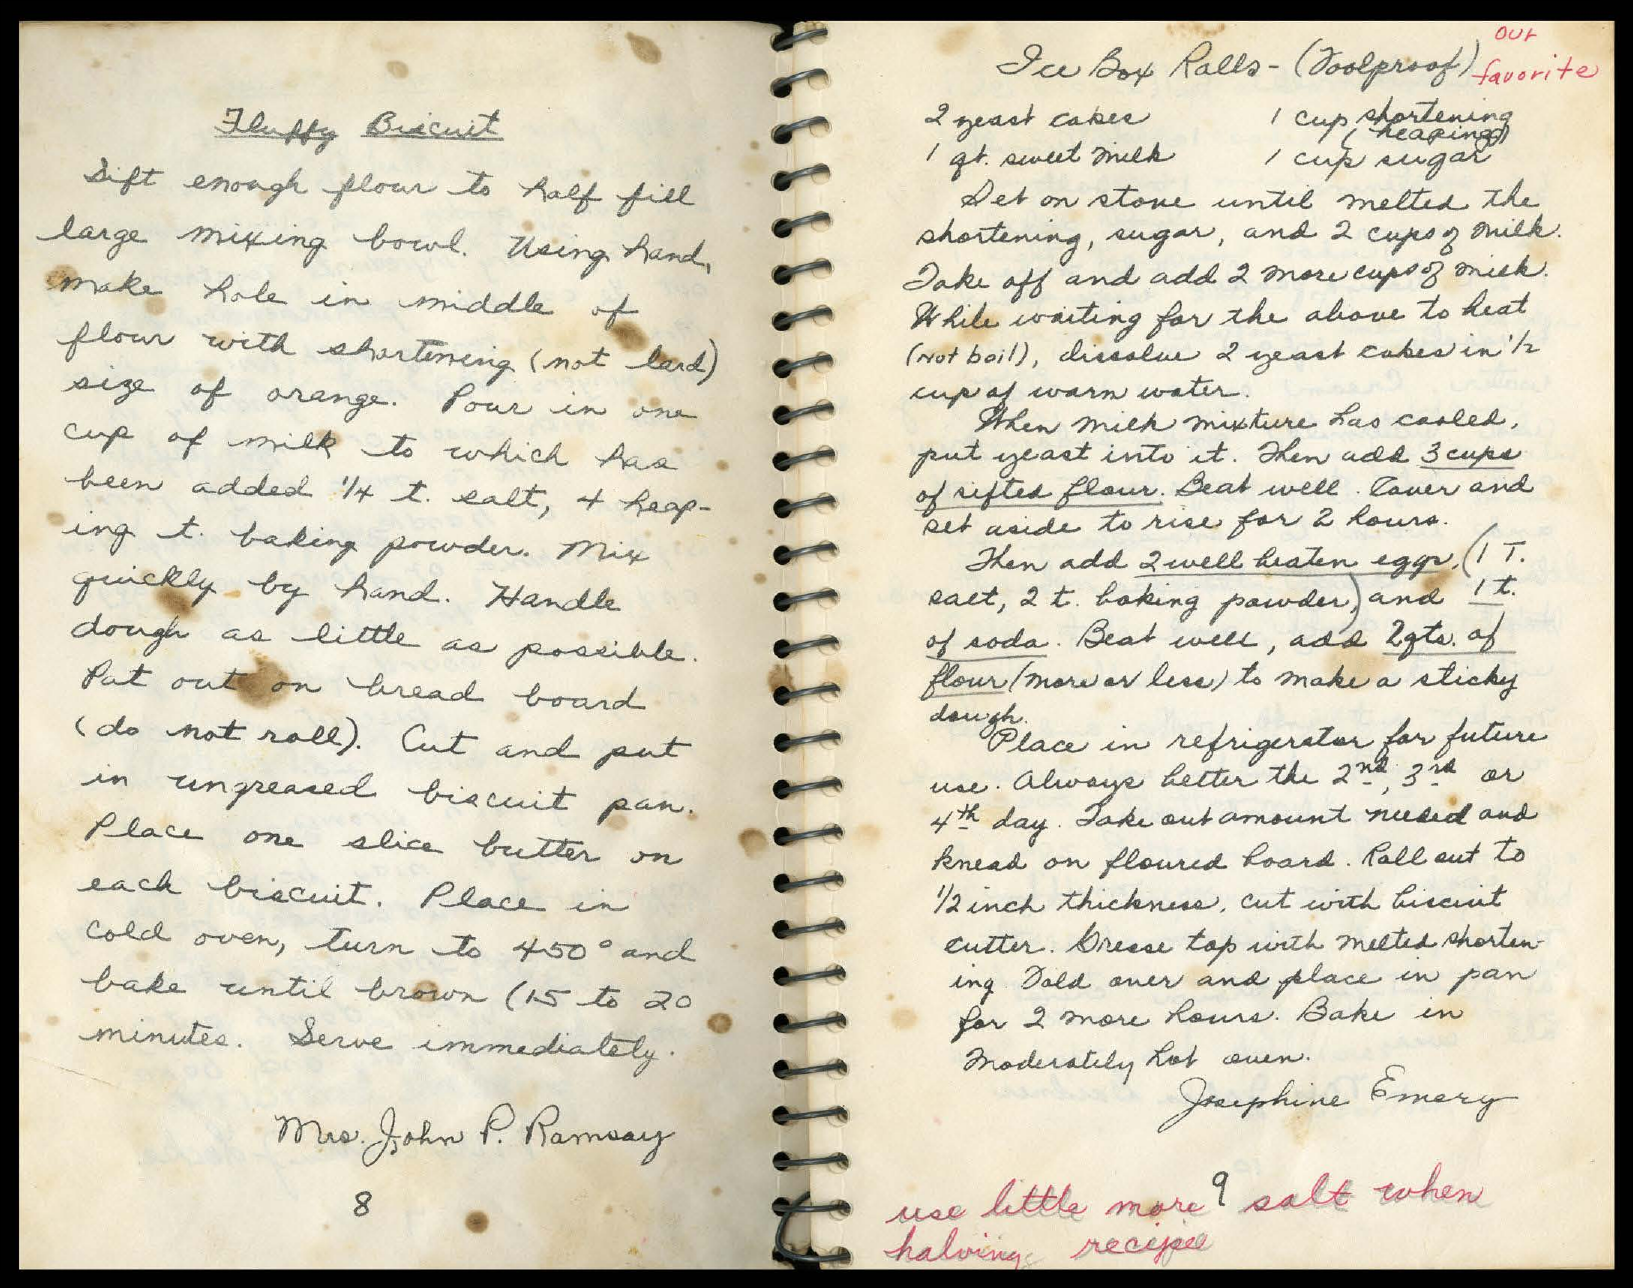 Fluffy Biscuit
Sift enough flour to half fill
large mixing bowl. Using hand,
make hole in middle of
flour with shortening (not lard)
size of orange. Pour in one
cup of milk to which has
been added 1/4 t. salt, 4 heap-
ing t. baking powder. Mix
quickly by hand. Handle
dough as little as possible.
Pat out on bread board
(do not roll). Cut and put
in ungreased biscuit pan.
Place one slice butter on
each biscuit. Place in
cold oven, turn to 450° and
bake until brown (15 to 20
minutes. Serve immediately.
Mrs. John P. Ramsay
8
Ice Box Rolls - (Foolproof) our
favorite
2 yeast cakes 1 cup shortening
(heaping)
1 qt. sweet milk 1 cup sugar
Set on stove until melted the
shortening, sugar, and 2 cups of milk.
Take off and add 2 more cups of milk.
While waiting for the above to heat
(not boil), dissolve 2 yeast cakes in 1/2
cup of warm water.
When milk mixture has cooled,
put yeast into it. Then add 3 cups
of sifted flour. Beat well. Cover and
set aside to rise for 2 hours.
Then add 2 well beaten eggs, (1 T.
salt, 2 t. baking powder,) and 1 t.
of soda. Beat well, add 2 qts. of
flour (more or less) to make a sticky
dough.
Place in refrigerator for future
use. Always better the 2nd, 3rd or
4th day. Take out amount needed and
knead on floured board. Roll out to
1/2 inch thickness, cut with biscuit
cutter. Grease top with melted shorten-
ing. Fold over and place in pan
for 2 more hours. Bake in
moderately hot oven.
Josephine Emery
9
use little more salt when
halving recipe